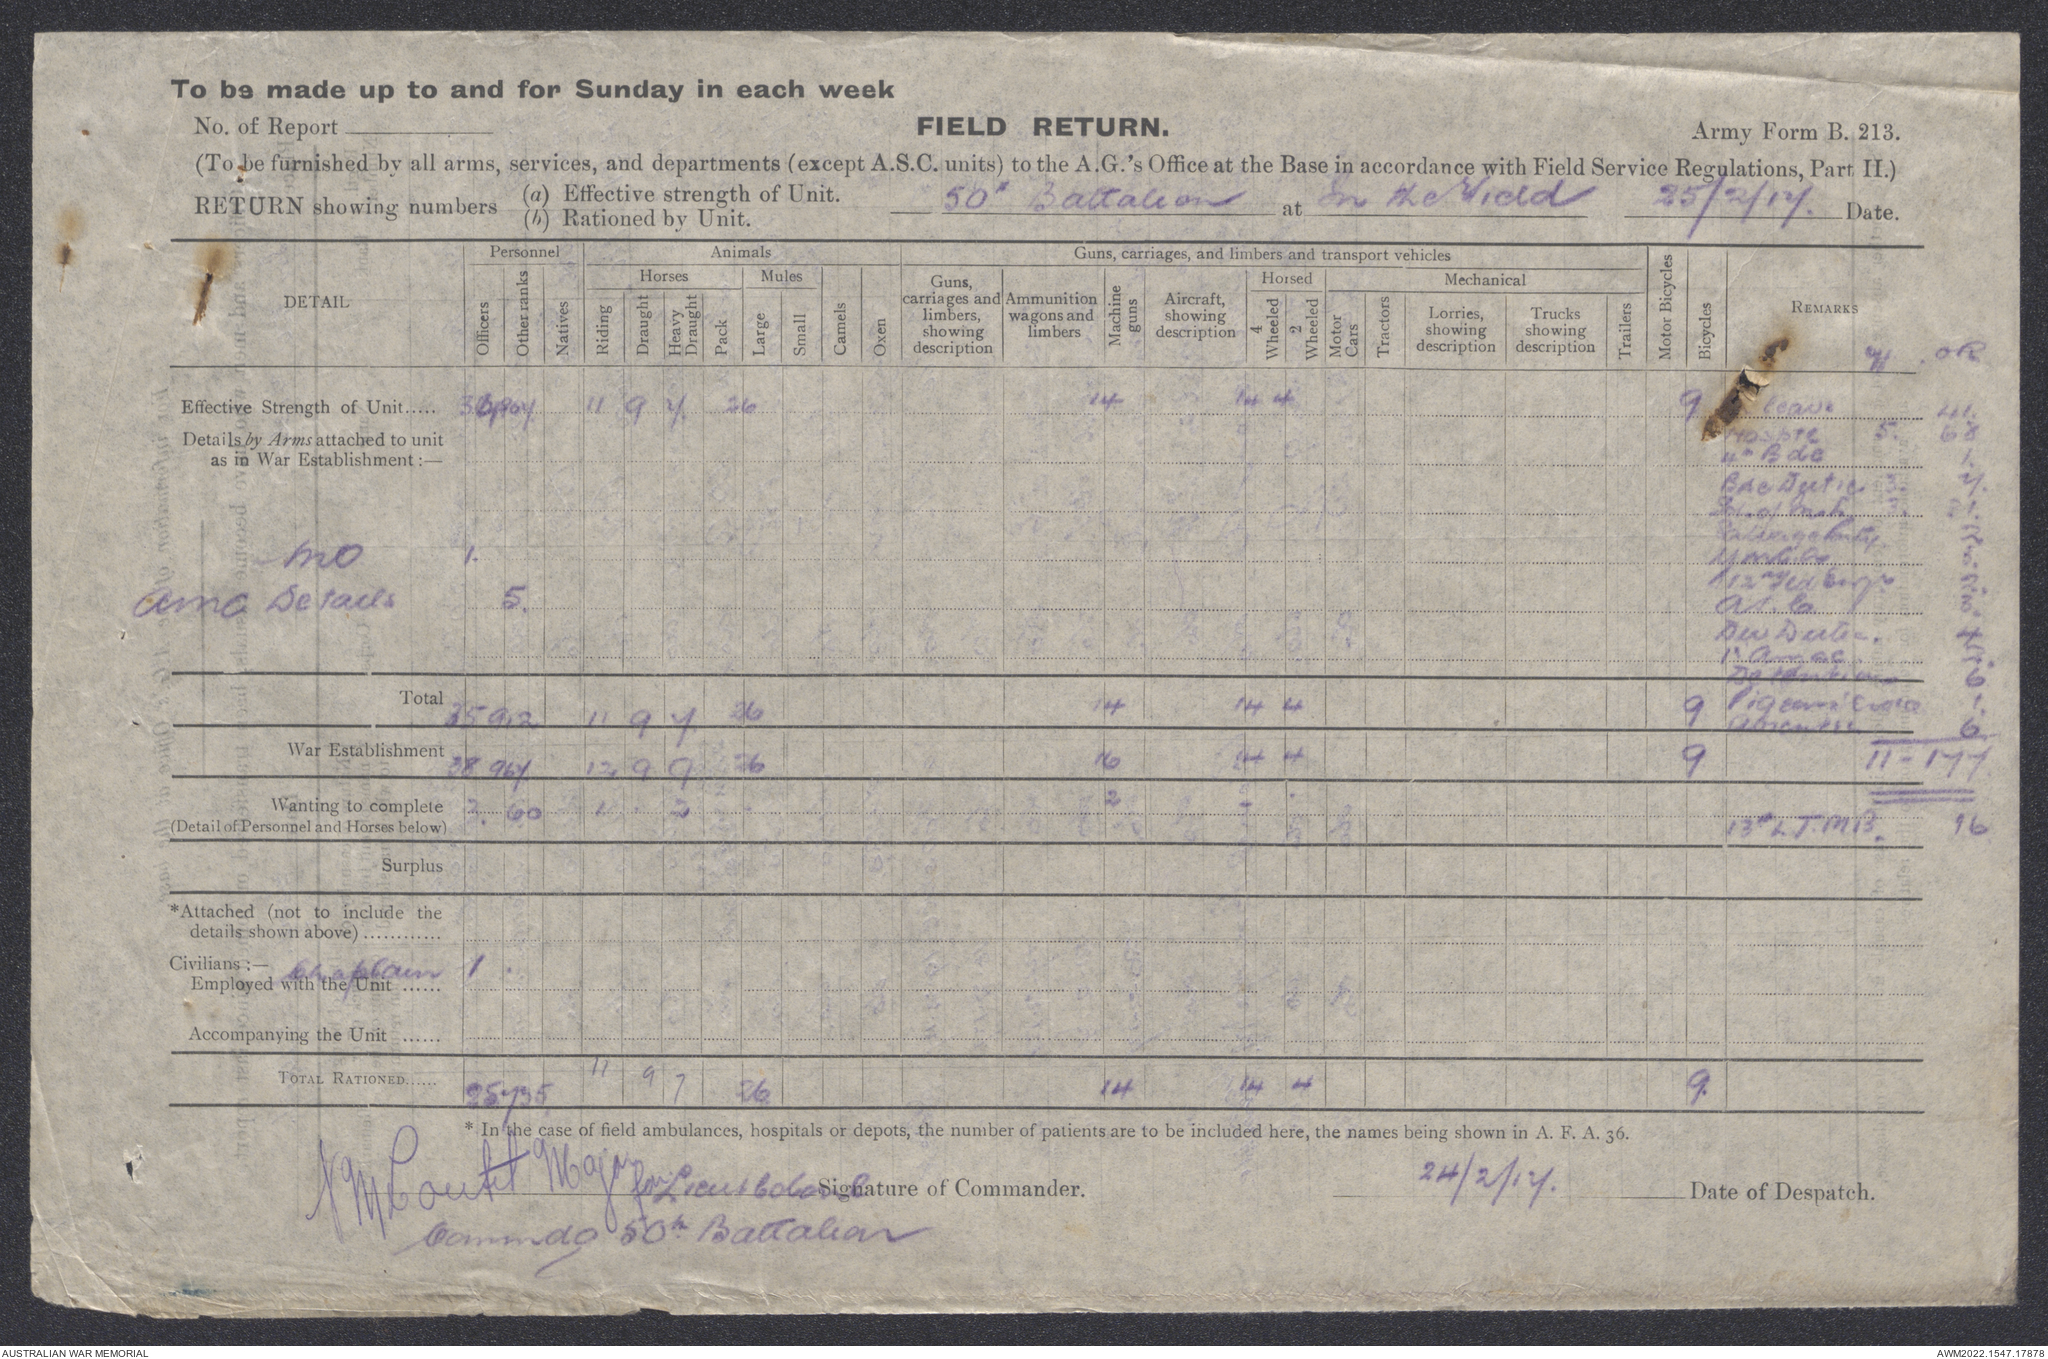 To be made up to and for Sunday in each week
No. of Report
FIELD RETURN.
Army Form B. 213.
(To be furnished by all arms, services, and departments (except A.S.C. units) to the A.G.'s Office at the Base in accordance with Field Service Regulations, Part II.)
RETURN showing numbers (a) Effective strength of Unit.
(b) Rationed by Unit.
50th Battalion at In the Field 25/2/17. Date.
DETAIL
Personnel
Animals
Guns, carriages, and limbers and transport vehicles
Horses
Mules
Horsed
Mechanical
Officers
Other ranks
Natives
Riding
Draught
Heavy Draught
Pack
Large
Small
Camels
Oxen
Guns, carriages and limbers, showing description
Ammunition wagons and limbers
Machine guns
Aircraft, showing description
4 Wheeled
2 Wheeled
Motor Cars
Tractors
Lorries, showing description
Trucks showing description
Trailers
Motor Bicycles
Bicycles
REMARKS
OR
Effective Strength of Unit..... 11 9 7. 26 14 14 4 9 leave 41.
Details by Arms attached to unit
as in War Establishment :—
Hospital 5. 68
4th Bde 1.
Bde Duties 7.
MO 1.
AMC Details 5.
3.
Div Duties. 4
Total 35 912 11 9 7. 26 14 14 4 9 1.
6
War Establishment 38 967 12 9 9 26 16 14 4 9 11 - 177
Wanting to complete 3. 60 1 2 2
(Detail of Personnel and Horses below)
13th L.T.M.B. 16
Surplus
*Attached (not to include the
details shown above)............
Civilians :— Chaplain 1.
Employed with the Unit ......
Accompanying the Unit ......
TOTAL RATIONED...... 25 735 11 9 7 26 14 14 4 9.
* In the case of field ambulances, hospitals or depots, the number of patients are to be included here, the names being shown in A. F. A. 36.
N M Loutit Major
for Lieut Colonel Signature of Commander.
24/2/17. Date of Despatch.
Commdg 50th Battalion
AUSTRALIAN WAR MEMORIAL
AWM2022.1547.17878